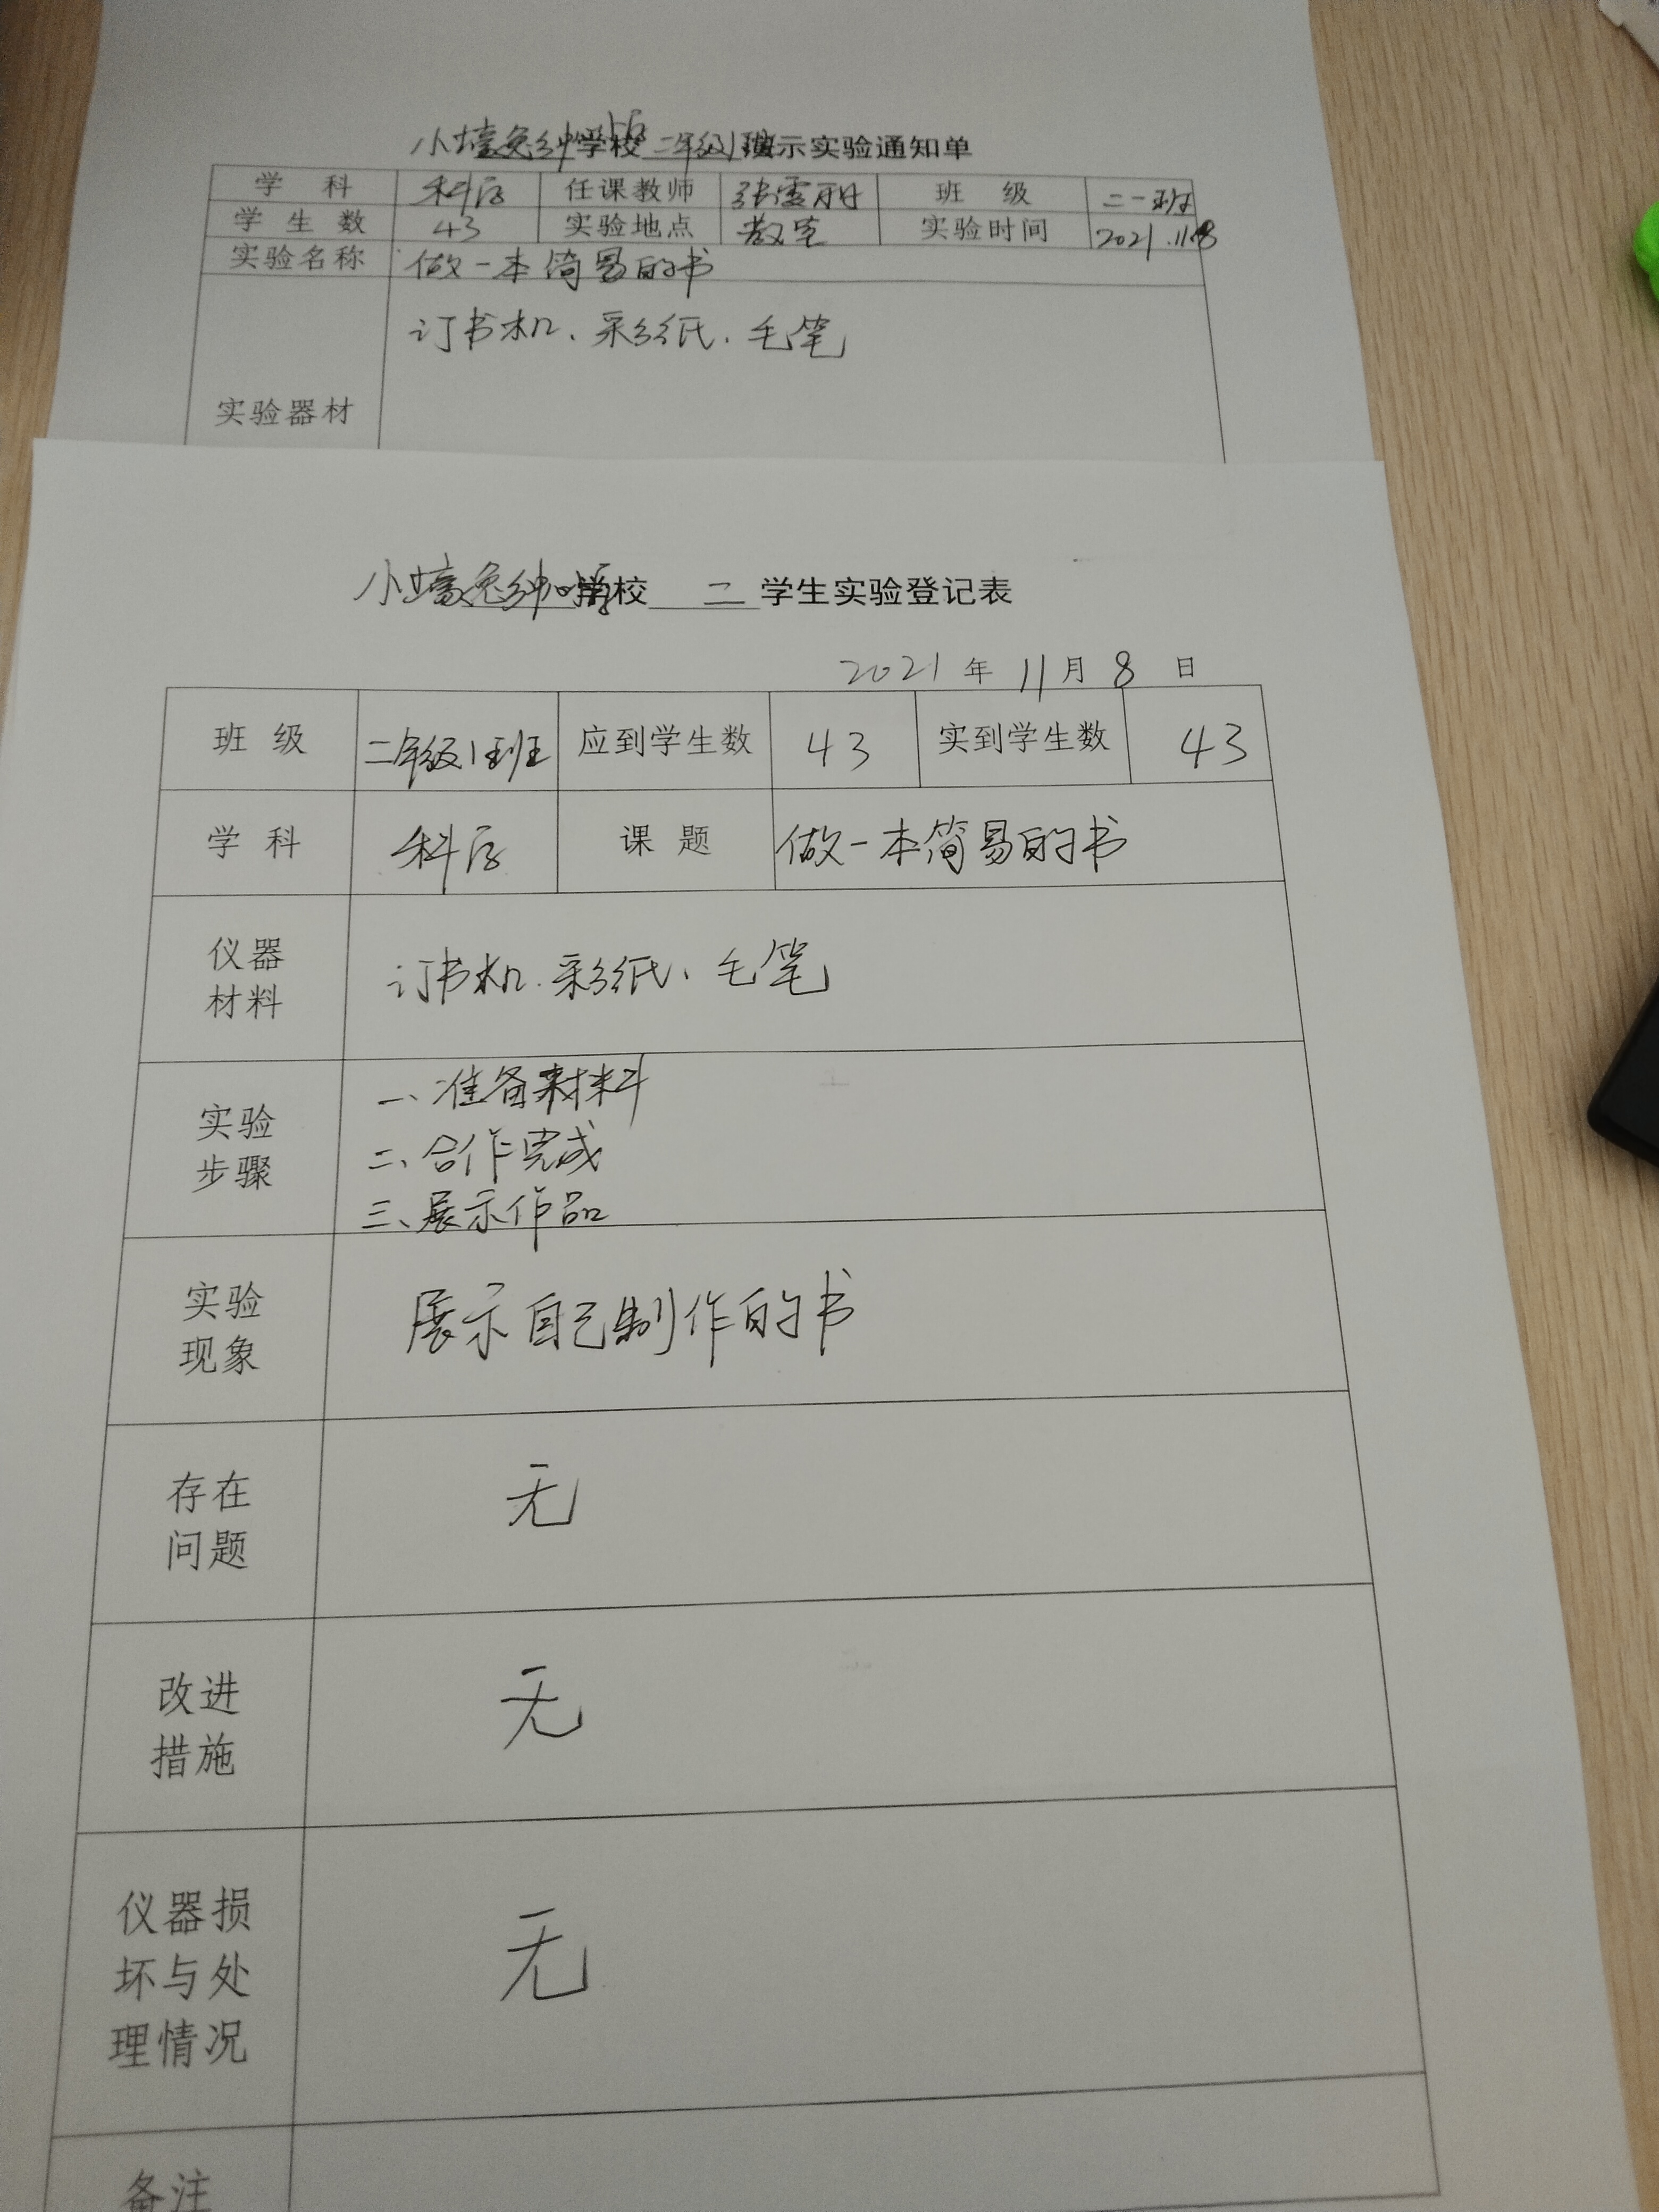 学校 二年级1班 演示实验通知单
学 科 科学 任课教师 班 级 二一班
学 生 数 43 实验地点 教室 实验时间 2021.11.8
实验名称 做一本简易的书
订书机、彩纸、毛笔
实验器材
学校 二 学生实验登记表
2021 年 11 月 8 日
班 级 二年级1班 应到学生数 43 实到学生数 43
学 科 科学 课 题 做一本简易的书
仪器
材料 订书机、彩纸、毛笔
一、准备材料
实验
步骤 二、合作完成
三、展示作品
实验
现象 展示自己制作的书
存在
问题 无
改进
措施 无
仪器损
坏与处 无
理情况
备注